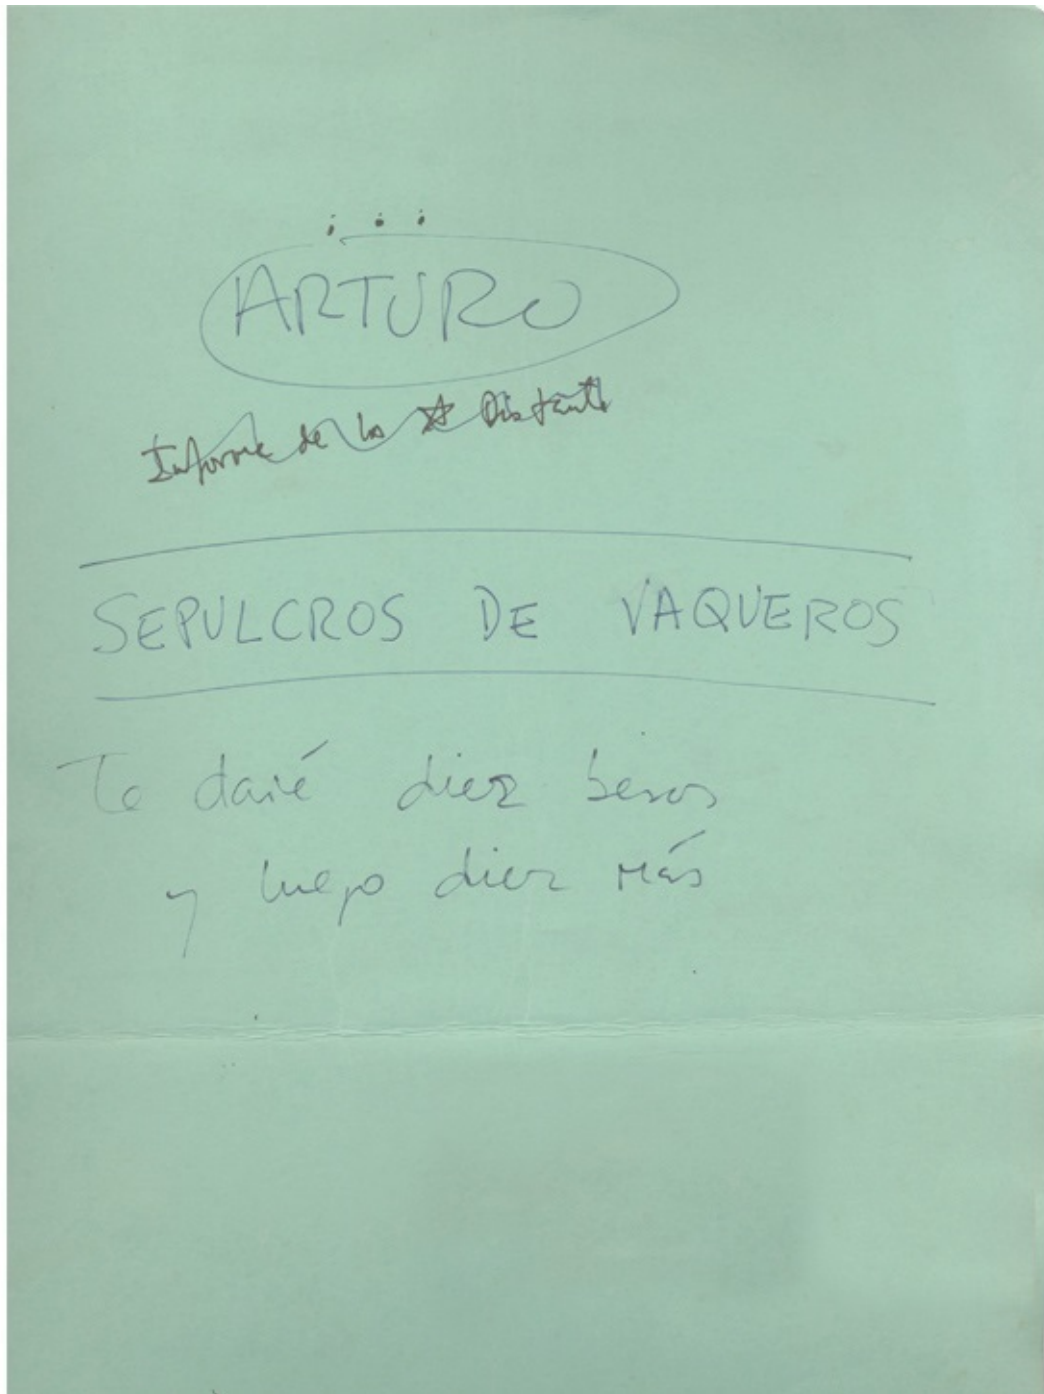 ...
ARTURO
Informe de la ☆ Distante
SEPULCROS DE VAQUEROS
Te daré diez besos
y luego diez más